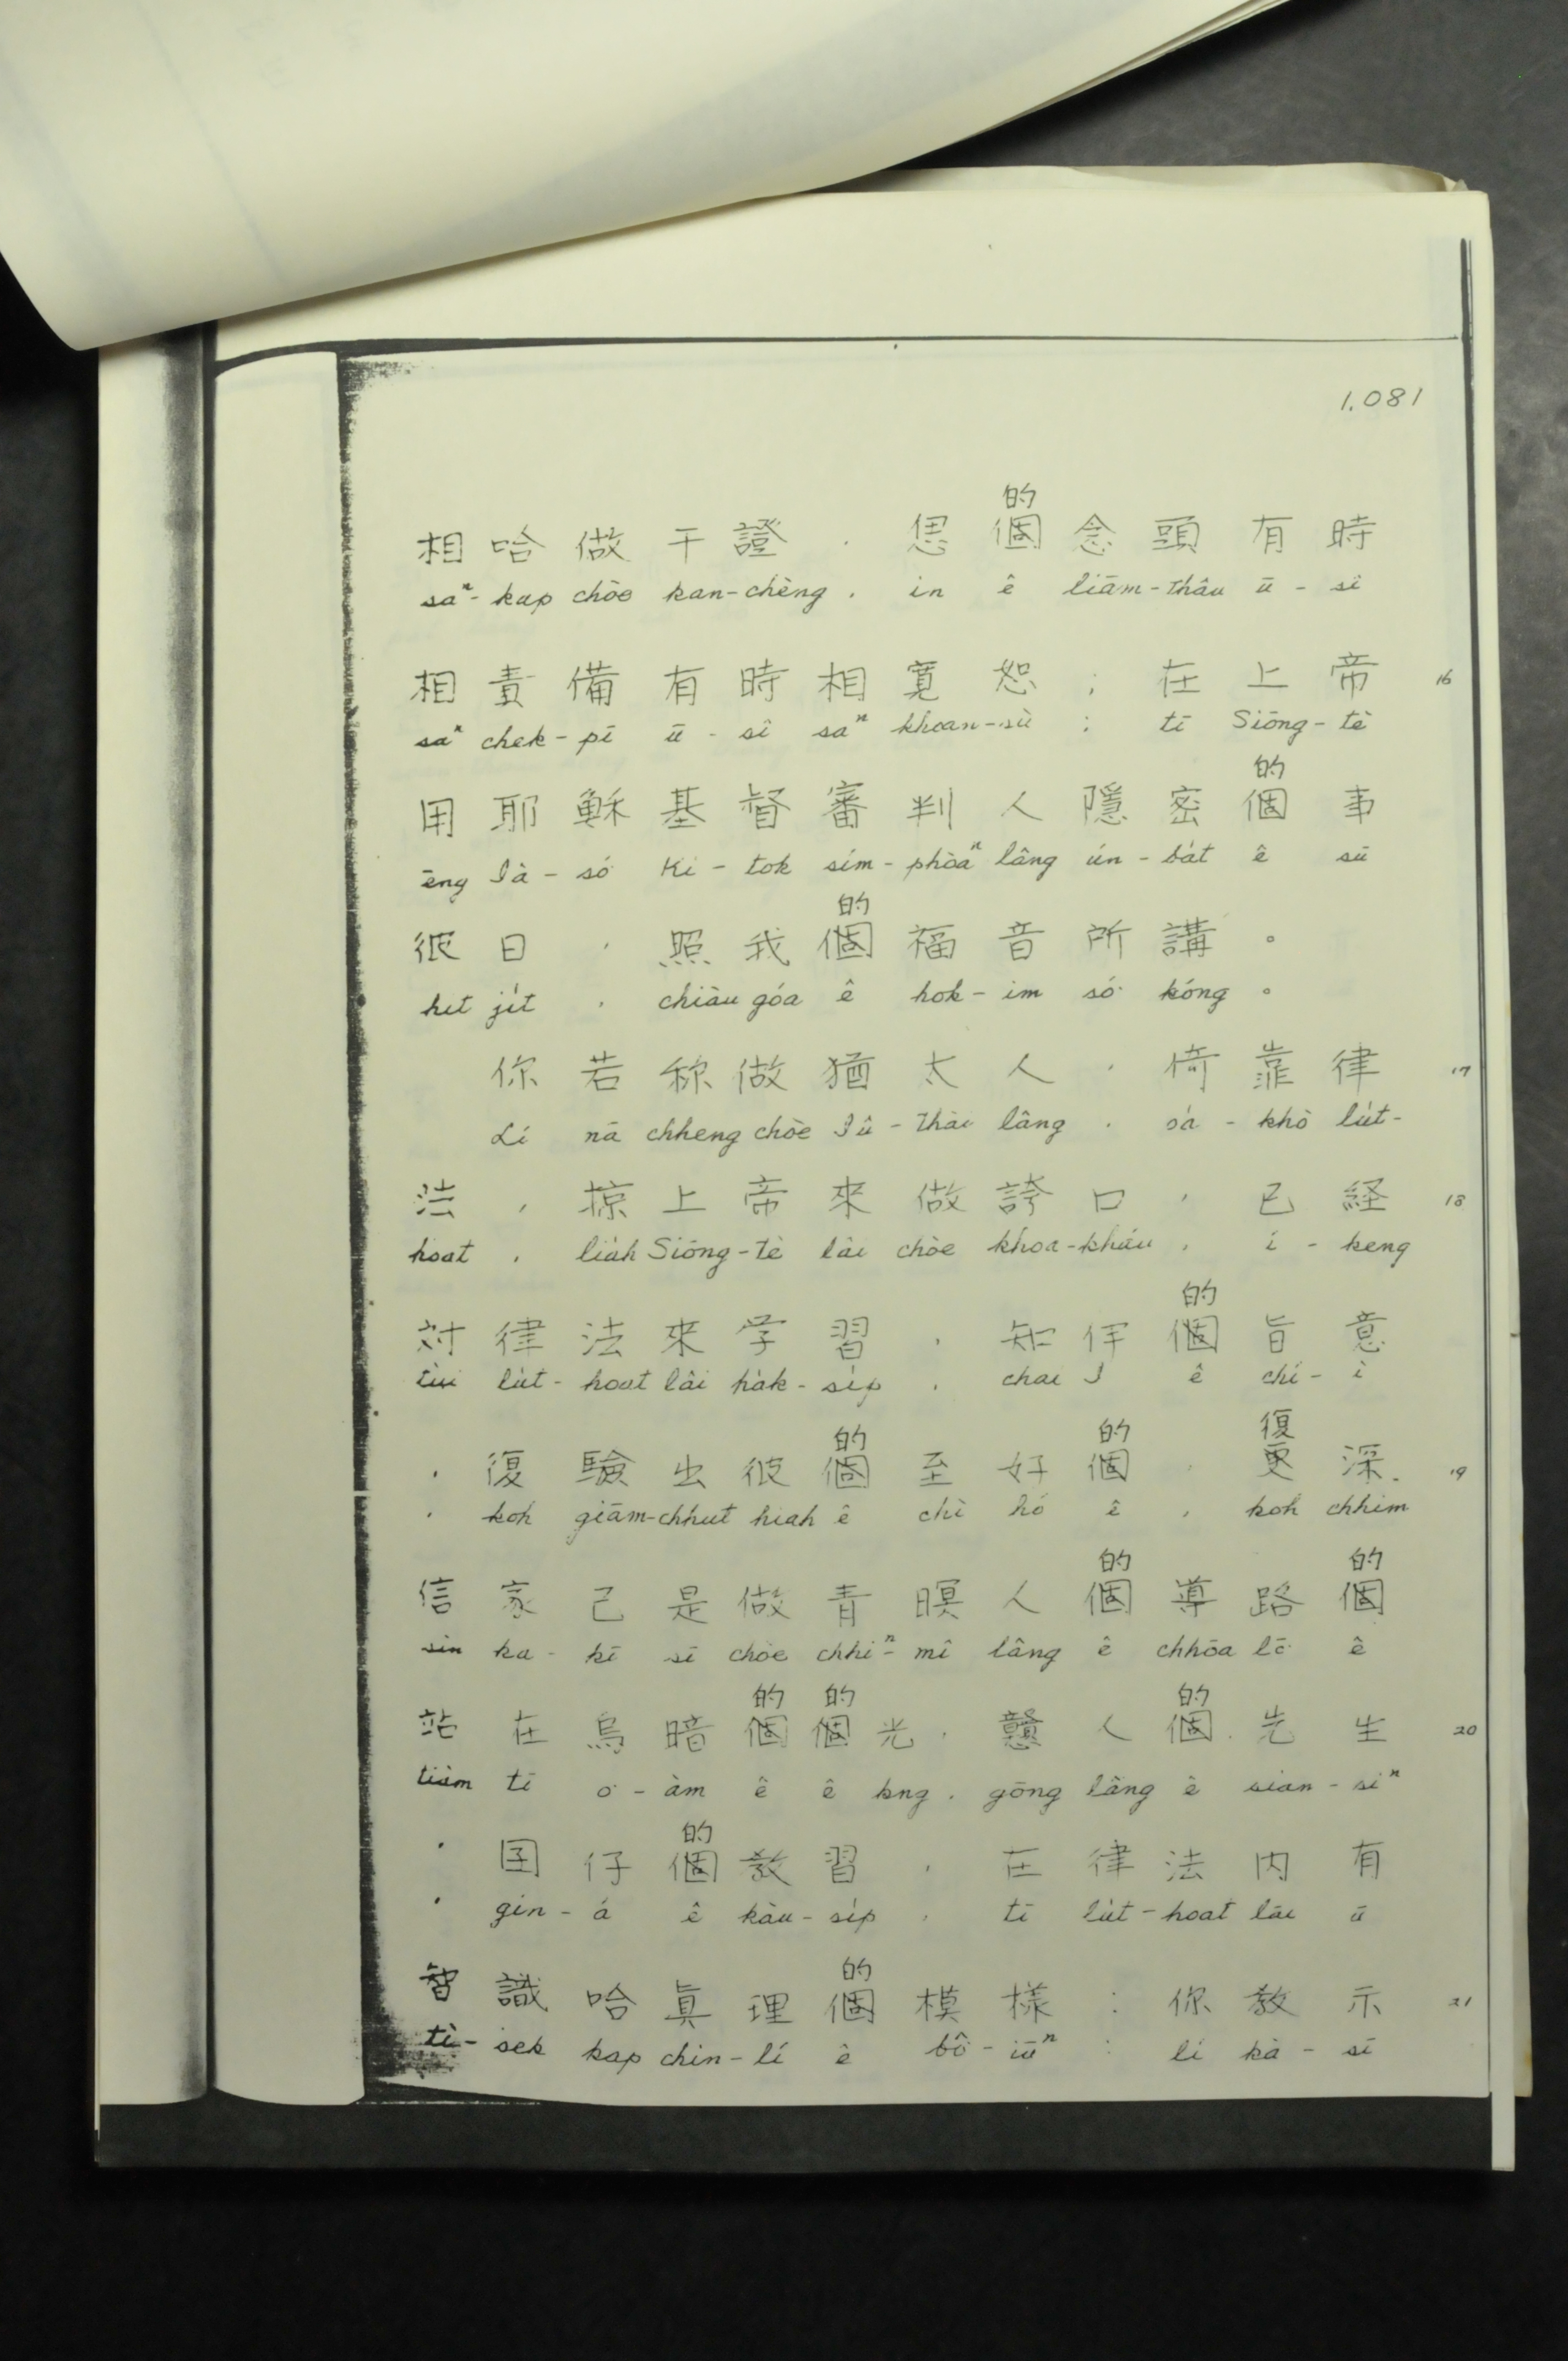 1.081
的
相哈做干證，恁個念頭有時
saⁿ-kap chòe kan-chèng, in ê liām-thâu ū-sî
相責備有時相寬恕；在上帝 16
saⁿ chek-pī ū-sî saⁿ khoan-sù; tī Siōng-tè
的
用耶穌基督審判人隱密個事
ēng Iâ-so͘ Ki-tok sím-phòaⁿ lâng ún-ba̍t ê sū
的
彼日，照我個福音所講。
hit ji̍t, chiàu góa ê hok-im só͘ kóng。
你若称做猶太人，倚靠律 17
Lí nā chheng chòe Iû-thài lâng, oá-khò lu̍t-
法，掠上帝來做誇口，已経 18
hoat, lia̍h Siōng-tè lâi chòe khoa-kháu, í-keng
的
対律法來学習，知伊個旨意
tùi lu̍t-hoat lâi ha̍k-si̍p, chai I ê chí-ì
的 的 復
，復驗出彼個至好個，更深 19
, koh giām-chhut hiah ê chì hó ê, koh chhim
的 的
信家己是做青暝人個導路個
sìn ka-kī sī chòe chhiⁿ-mî lâng ê chhōa lō͘ ê
的 的 的
站在烏暗個個光，戇人個先生 20
tiàm tī o͘-àm ê ê kng, gōng lâng ê sian-siⁿ
的
，囝仔個教習，在律法内有
, gín-á ê kàu-si̍p, tī lu̍t-hoat lāi ū
的
智識哈眞理個模樣：你教示 21
tì-sek kap chin-lí ê bô͘-iūⁿ: lí kà-sī